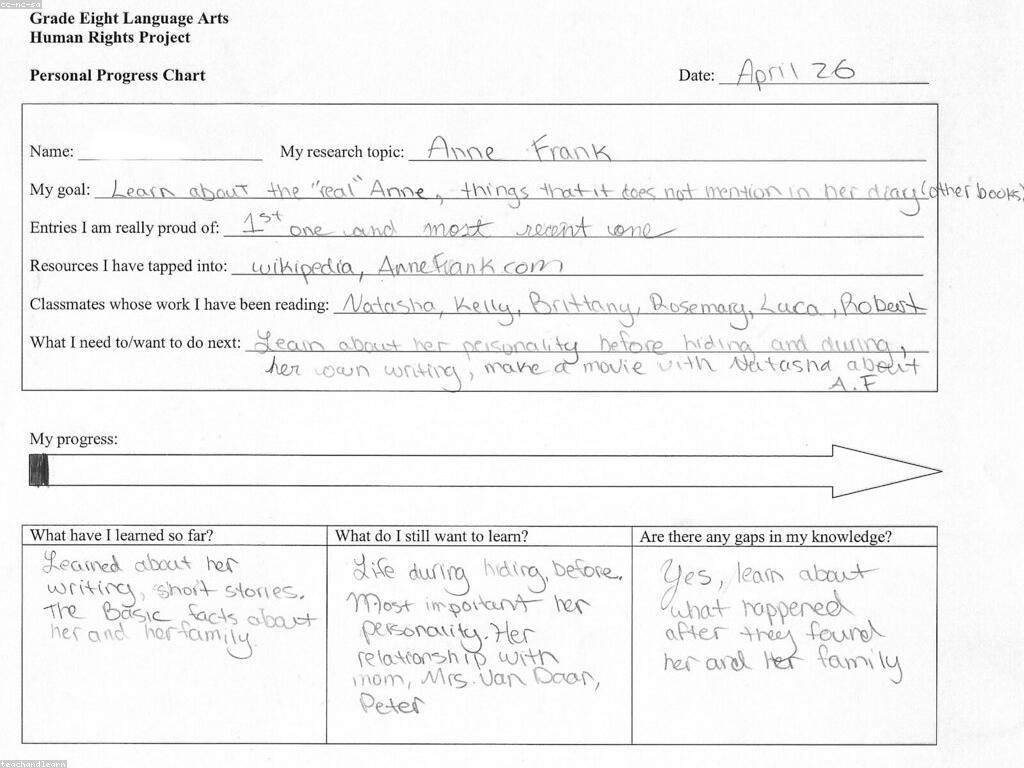 cc-nc-sa
Grade Eight Language Arts
Human Rights Project
Personal Progress Chart
Date: April 26
Name:
My research topic: Anne Frank
My goal: Learn about the "real" Anne, things that it does not mention in her diary (other books)
Entries I am really proud of: 1st one and most recent one
Resources I have tapped into: wikipedia, AnneFrank.com
Classmates whose work I have been reading: Natasha, Kelly, Brittany, Rosemary, Lara, Robert
What I need to/want to do next: Learn about her personality before hiding and during,
her own writing, make a movie with Natasha about
A.F
My progress:
What have I learned so far?
Learned about her
writing, short stories.
The Basic facts about
her and her family.
What do I still want to learn?
Life during hiding, before.
Most important her
personality. Her
relationship with
mom, Mrs. Van Daan,
Peter
Are there any gaps in my knowledge?
Yes, learn about
what happened
after they found
her and her family
teachandlearn